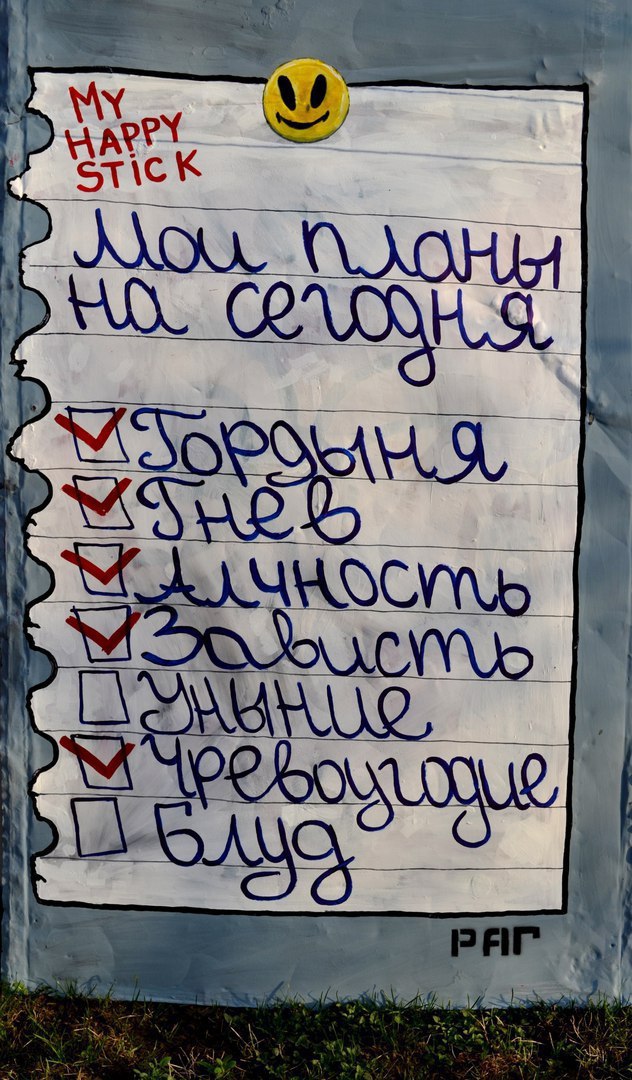 MY
HAPPY
STiCK
Мои планы
на сегодня
Гордыня
Гнев
Алчность
Зависть
Уныние
Чревоугодие
Блуд
РАГ